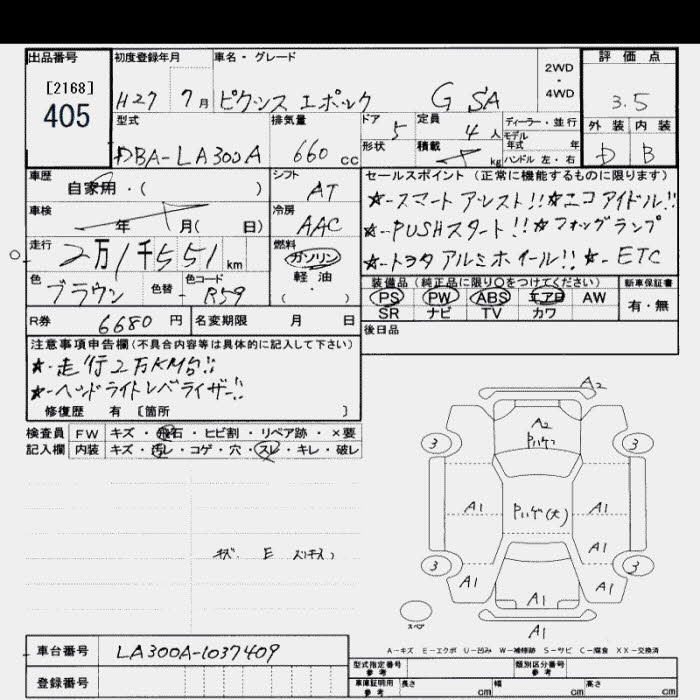 出品番号 初度登録年月 車名・グレード 2WD・4WD 評価点
[2168]
405
H27 7月 ピクシス エポック G SA 3.5
型式 排気量 ドア 定員 ディーラー・並行 外装 内装
DBA-LA300A 660cc 5 4人 モデル年式 年 D B
形状 積載 kg ハンドル 左・右
車歴 シフト セールスポイント(正常に機能するものに限ります)
自家用・( ) AT
☆-スマートアシスト!! ☆エコアイドル!!
車検 冷房
年 月( 日) AAC
☆-PUSHスタート!! ☆フォグランプ
走行 燃料
2万1千551km ガソリン・軽油( )
☆-トヨタアルミホイール!! ☆-ETC
色 色替 色コード
ブラウン R59
装備品(純正品に限り○をつけてください) 新車保証書
PS PW ABS エアB AW 有・無
SR ナビ TV カワ
R券 6680円 名変期限 月 日
後日品
注意事項申告欄(不具合内容等は具体的に記入して下さい)
☆-走行2万KM台!!
☆-ヘッドライトレベライザー!!
修復歴 有 [箇所 ]
検査員 FW キズ・飛石・ヒビ割・リペア跡・×要
記入欄 内装 キズ・汚レ・コゲ・穴・スレ・キレ・破レ
A2
A2
Pハゲ
3 3
A1 Pハゲ(大) A1
A1
キズ E
3 3
A1 A1 A1
スペア
A1
A-キズ E-エクボ U-凹み W-補修跡 S-サビ C-腐食 XX-交換済
車台番号 LA300A-1037409
型式指定番号 参考 類別区分番号 参考
登録番号
車庫証明用 参考 長さ cm 幅 cm 高さ cm